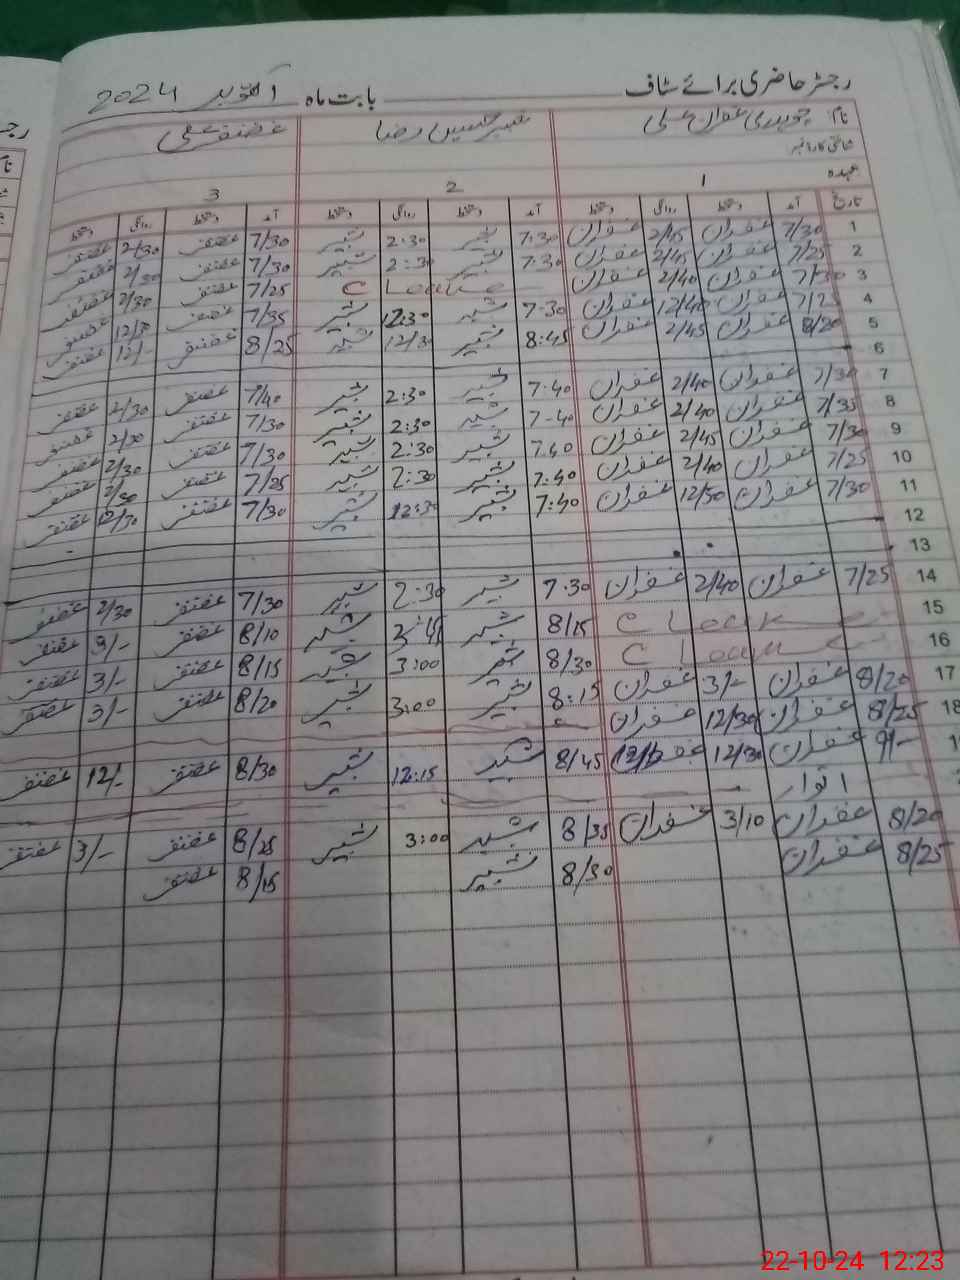 رجسٹر حاضری برائے سٹاف بابت ماہ اکتوبر 2024
نام: چوہدری غفران علی شبیر حسین رضا غضنفر علی
شناختی کارڈ نمبر
عہدہ
1 2 3
تاریخ آمد دستخط روانگی دستخط آمد دستخط روانگی دستخط آمد دستخط روانگی دستخط
1 7/30 غفران 2/45 غفران 7:30 شبیر 2:30 شبیر 7/30 غضنفر 2/30 غضنفر
2 7/25 غفران 2/45 غفران 7:30 شبیر 2:30 شبیر 7/30 غضنفر 2/30 غضنفر
3 غفران 2/40 غفران C Leave 7/25 غضنفر 2/30 غضنفر
4 غفران 12/40 غفران 7:30 شبیر 12:30 شبیر 7/35 غضنفر غضنفر
5 8/20 غفران 2/45 غفران 8:45 شبیر 12/30 شبیر 8/25 غضنفر 12/- غضنفر
6
7 7/30 غفران 2/40 غفران 7:40 شبیر 2:30 شبیر 7/40 غضنفر 2/30 غضنفر
8 7/35 غفران 2/40 غفران 7:40 شبیر 2:30 شبیر 7/30 غضنفر 2/30 غضنفر
9 7/30 غفران 2/45 غفران 7:40 شبیر 2:30 شبیر 7/30 غضنفر 2/30 غضنفر
10 7/25 غفران 2/40 غفران 7:40 شبیر 2:30 شبیر 7/25 غضنفر 2/30 غضنفر
11 7/30 غفران 12/50 غفران 7:40 شبیر 12:30 شبیر 7/30 غضنفر غضنفر
12
13
14 7/25 غفران 2/40 غفران 7:30 شبیر 2:30 شبیر 7/30 غضنفر 2/30 غضنفر
15 C Leave 8/15 شبیر شبیر 8/10 غضنفر 3/- غضنفر
16 C Leave 8/30 شبیر 3:00 شبیر 8/15 غضنفر 3/- غضنفر
17 8/20 غفران 3/- غفران 8:15 شبیر 3:00 شبیر 8/20 غضنفر 3/- غضنفر
18 8/25 غفران 12/30 غفران
9/- غفران 12/30 8/45 شبیر 12:15 شبیر 8/30 غضنفر 12/- غضنفر
اتوار
8/20 غفران 3/10 غفران 8/35 شبیر 3:00 شبیر 8/25 غضنفر 3/- غضنفر
8/25 غفران 8/30 شبیر 8/15 غضنفر
22-10-24 12:23